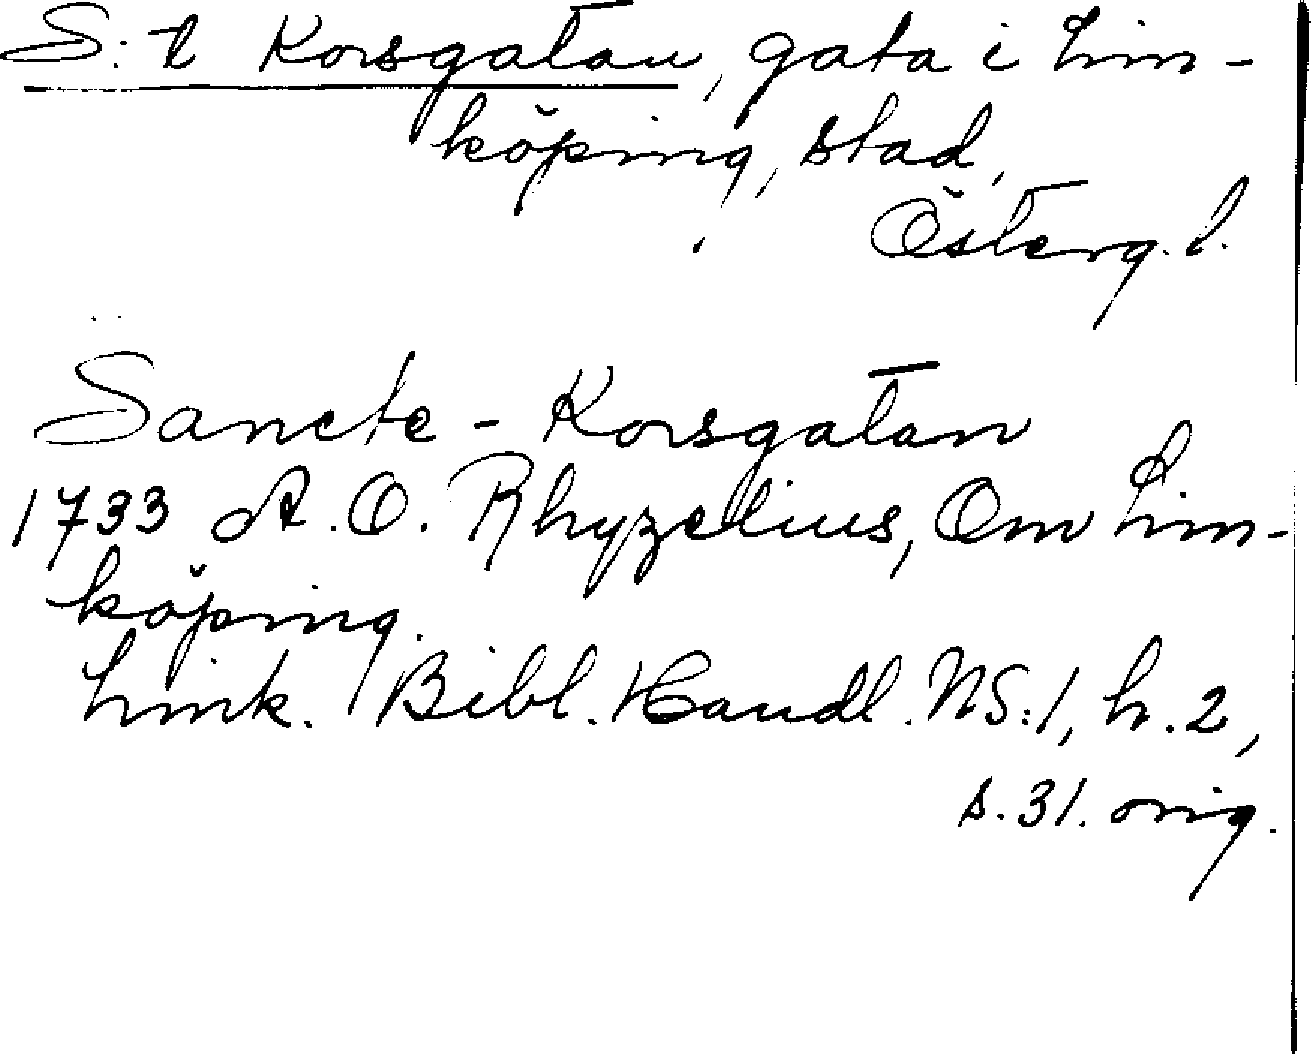 S:t Korsgatan, gata i Lin-
köping, stad,
Österg. l.
Sancte-Korsgatan
1733 A. O. Rhyzelius, Om Lin-
köping.
Link. Bibl. Handl. NS:1, h. 2,
s. 31. orig.